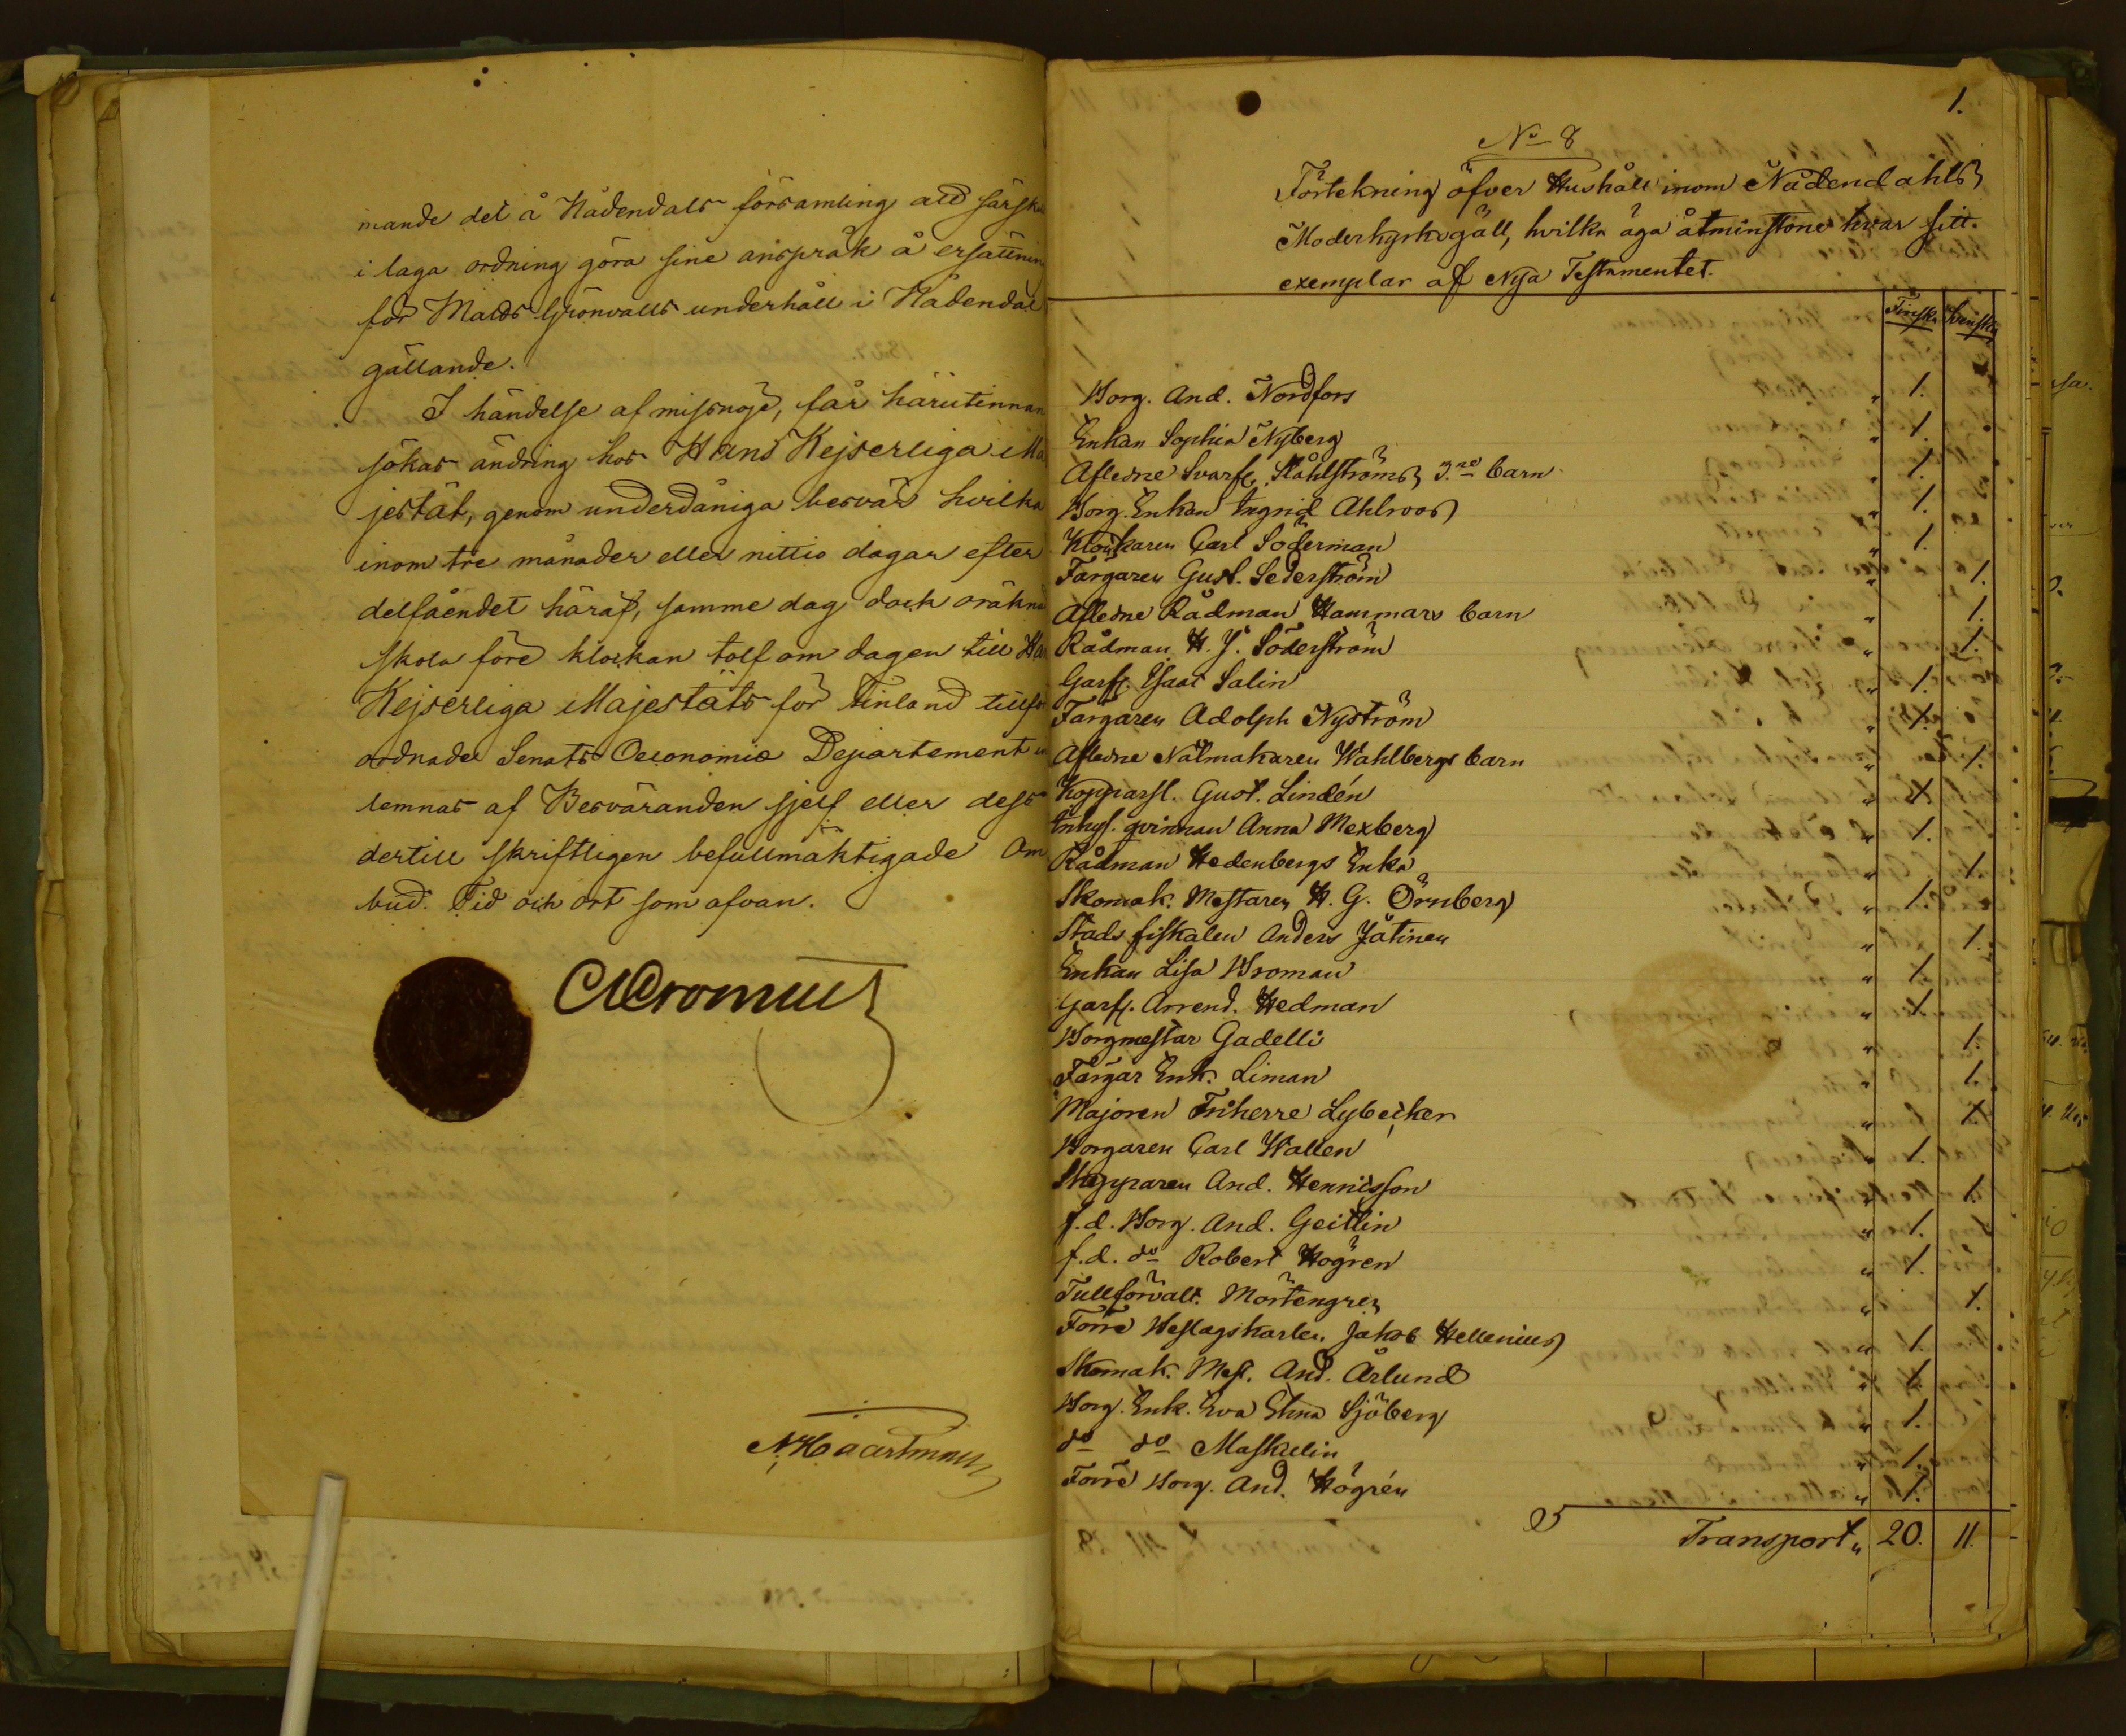 mande det å Nådendals församling att särskil
i laga ordning göra sine anspråk å ersättnin
för Matts Grönvalls underhåll i Nådendal
gällande.
I händelse af missnöje, får härutinnan
sökas ändring hos Hans Kejserliga Ma
jestät, genom underdåniga besvär hvilka
inom tre månader eller nittio dagar efter
delfåendet häraf, samme dag dock oräkna
skola före klockan tolf om dagen till Ha
Kejserliga Majestäts för Finland tillfö
ordnade Senats Oeconomie Departement in
lemnas af Besväranden sjelf eller dess
dertill skriftligen befullmäktigade Om
bud. Tid och ort som ofvan.
N. Haartman
1.
No 8
Förtekning öfver Hushåll inom Nådendahls
Moderkyrkogäll, hvilka äga åtminstone hvar sitt
exemplar af Nya Testamentet.
Finska Svenska
Borg. And. Nordfors " 1.
Enkan Sophia Nyberg " 1.
Afledne Svarfv. Ståhlströms 3.ne barn " 1.
Borg. Enkan Ingrid Ahlroos " 1.
Klockaren Carl Söderman " 1.
Färgaren Gust. Sederström " 1.
Afledne Rådman Hammars barn " 1.
Rådman H. J. Söderström " 1.
Garfv. Isaac Salin " 1.
Färgaren Adolph Nyström " 1.
Afledne Nålmakaren Wahlbergs barn " 1.
Kopparsl. Gust. Lindén " 1.
Inhys. qvinnan Anna Mexberg " 1.
Rådman Hedenbergs Enka " 1.
Skomak. Mestaren H. G. Örnberg " 1.
Stads fiskalen Anders Jåtinen " 1.
Enkan Lisa Broman " 1.
Garfv. Arrend. Hedman " 1.
Borgmestar Gadelli " 1.
Färgar Enk. Liman " 1.
Majoren Friherre Lybecker " 1.
Borgaren Carl Wallen " 1.
Skepparen And. Hennisson " 1.
f.d. Borg. And. Geitlin " 1.
f.d. do Robert Högren " 1.
Tullförvalt. Mörtengren " 1.
Förre Beslagskarlen Jakob Hellenius " 1.
Skomak. Mest. And. Ålund " 1.
Borg. Enk. Eva Elina Sjöberg " 1.
do do Maskelin " 1.
Förre Borg. And. Högrén " 1.
Transport " 20. 11.